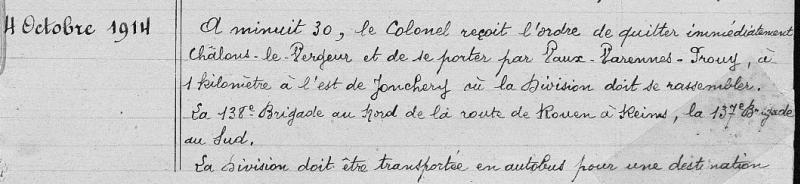 4 Octobre 1914
A minuit 30, le Colonel reçoit l'ordre de quitter immédiatement
Châlons-le-Vergeur et de se porter par Vaux-Varennes-Prouy, à
1 kilomètre à l'est de Jonchery où la Division doit se rassembler.
La 138e Brigade au Nord de la route de Rouen à Reims, la 137e Brigade
au Sud.
La Division doit être transportée en autobus pour une destination